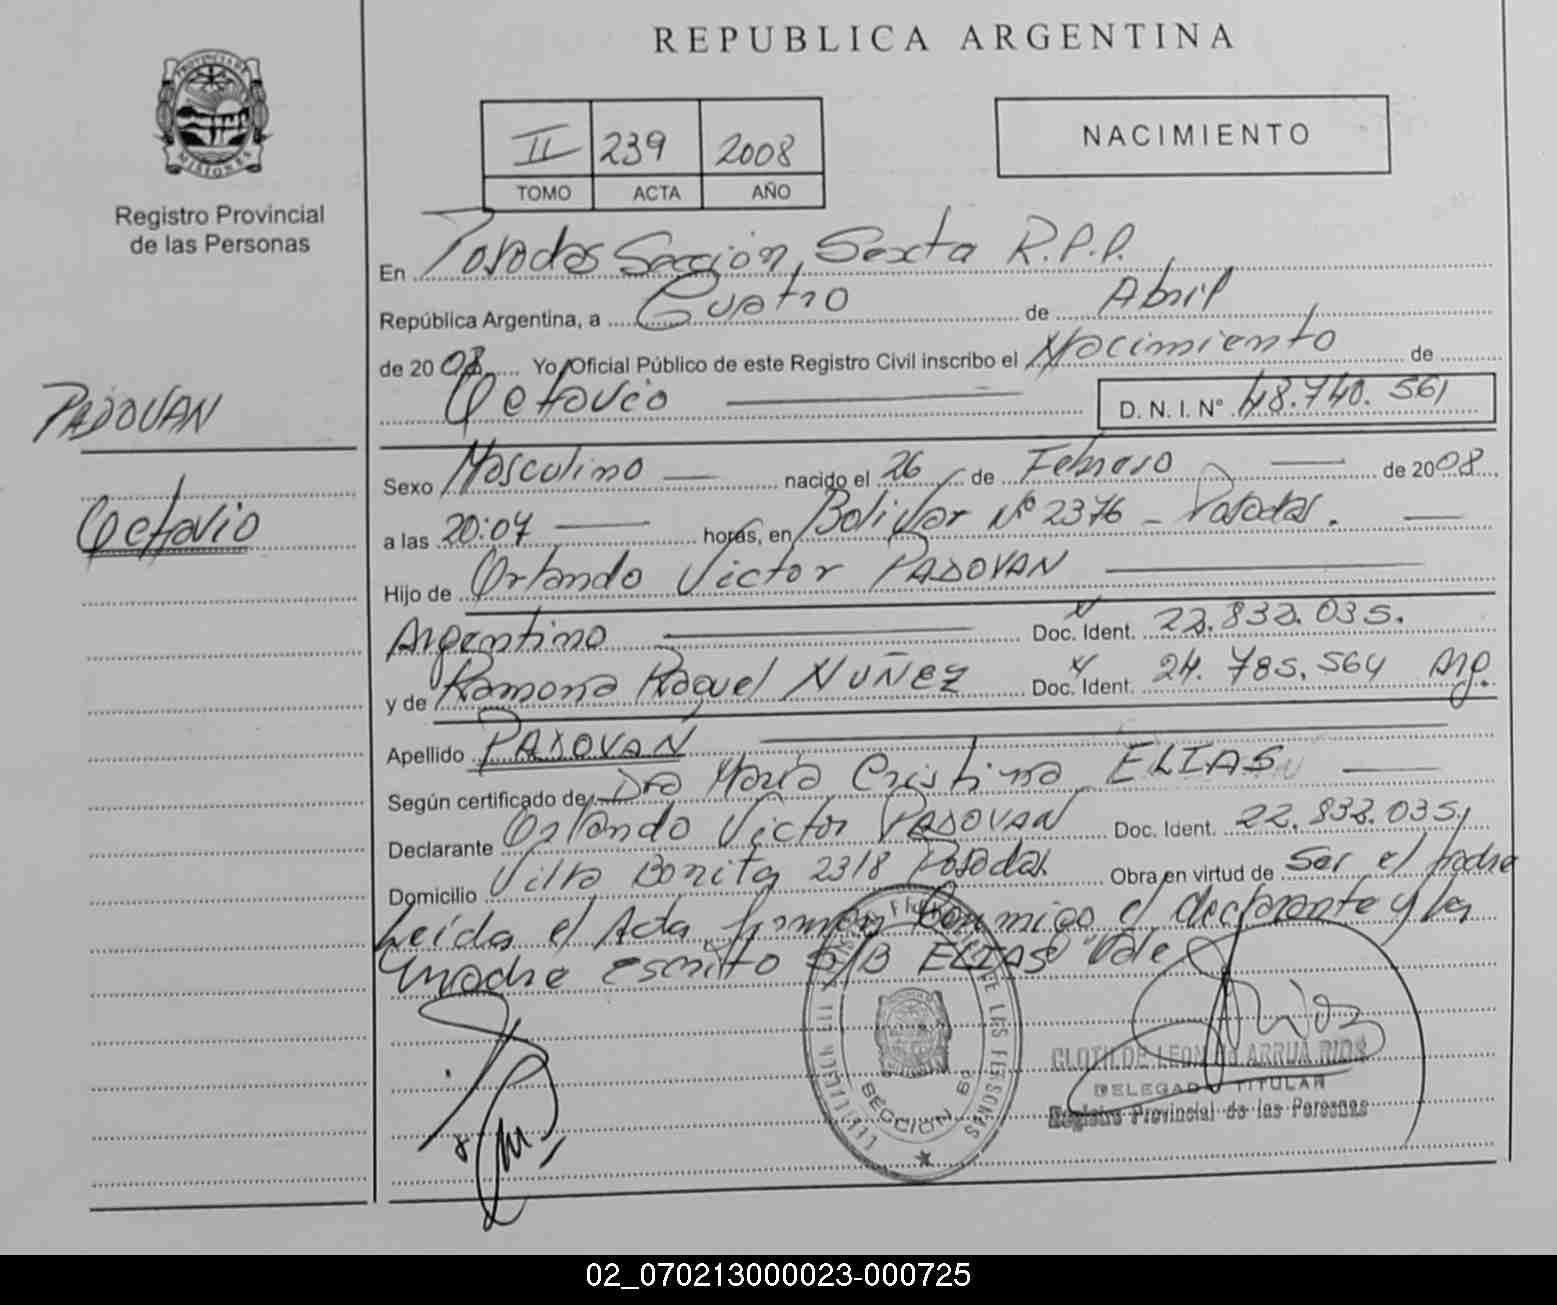 REPUBLICA ARGENTINA
PROVINCIA DE
MISIONES
Registro Provincial
de las Personas
II 239 2008
TOMO ACTA AÑO
NACIMIENTO
En Posadas Sección Sexta R.P.P.
República Argentina, a Cuatro de Abril
de 2008 Yo Oficial Público de este Registro Civil inscribo el Nacimiento de
Octavio D.N.I. N° 48.740.561
PADOVAN
Octavio
Sexo Masculino nacido el 26 de Febrero de 2008
a las 20:07 horas, en Bolivar Nº 2376 - Posadas.
Hijo de Orlando Victor PADOVAN
Argentino Doc. Ident. 22.832.035.
y de Ramona Raquel NUÑEZ Doc. Ident. 24.785.564 Arg.
Apellido PADOVAN
Según certificado de Dra Maria Cristina ELIAS
Declarante Orlando Victor PADOVAN Doc. Ident. 22.832.035,
Domicilio Villa Bonita 2318 Posadas Obra en virtud de Ser el padre
Leída el Acta firman conmigo el declarante y la
madre escrito S/B ELIAS Vale
SECCION 6a
CLOTILDE LEON DE ARRUA RIOS
DELEGADO TITULAR
Registro Provincial de las Personas
02_070213000023-000725